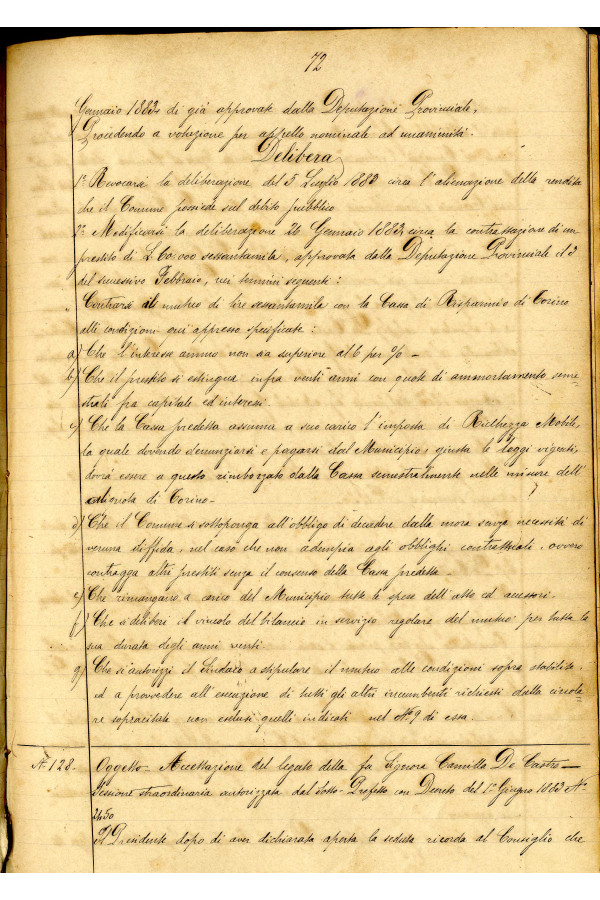 72
Gennaio 1883 di già approvate dalla Deputazione Provinciale,
Procedendo a votazione per appello nominale ad unanimità.
Delibera
1° Revocarsi la deliberazione del 5 Luglio 1882 circa l'alienazione della rendita
che il Comune possiede sul debito pubblico
2° Modificarsi la deliberazione 26 Gennaio 1883 circa la contrattazione di un
prestito di L. 60,000 sessantamila, approvata dalla Deputazione Provinciale il 3
del successivo Febbraio, nei termini seguenti:
Contrarsi il mutuo di lire sessantamila con la Cassa di Risparmio di Torino
alle condizioni qui appresso specificate:
a) Che l'interesse annuo non sia superiore al 6 per % -
b) Che il prestito si estingua infra venti anni con quote di ammortamento seme-
strali fra capitale ed interessi.
c) Che la Cassa predetta assuma a suo carico l'imposta di Ricchezza Mobile,
la quale dovendo denunziarsi e pagarsi dal Municipio, giusta le leggi vigenti,
dovrà essere a questo rimborzato dalla Cassa semestralmente nelle misure dell'
aliquota di Torino -
d) Che il Comune si sottoponga all'obbligo di decadere dalla mora senza necessità di
veruna diffida, nel caso che non adempia agli obblighi contrattuali, ovvero
contragga altri prestiti senza il consenso della Cassa predetta -
e) Che rimangano a carico del Municipio tutte le spese dell'atto ed accesori.
f) Che si deliberi il vincolo del bilancio in servizio regolare del mutuo per tutta la
sua durata degli anni venti.
g) Che si autorizzi il Sindaco a stipulare il mutuo alle condizioni sopra stabilite,
ed a provvedere all'esecuzione di tutti gli altri incumbenti richiesti dalla circola-
re sopracitata non esclusi quelli indicati nel N° 9 di essa.
N. 128. Oggetto - Accettazione del legato della fu Signora Camilla De Castro -
Sessione straordinaria autorizzata dal Sotto-Prefetto con Decreto del 1° Giugno 1883 N°
2450
Il Presidente dopo di aver dichiarata aperta la seduta ricorda al Consiglio che